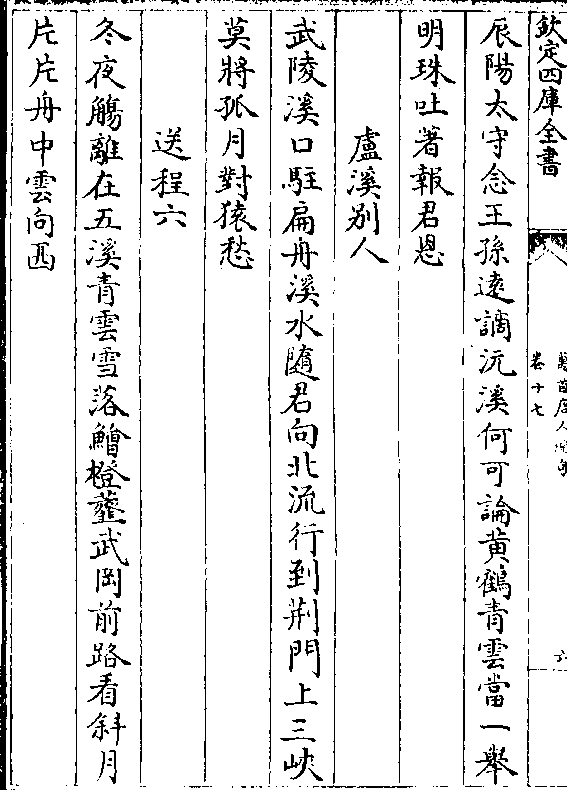 欽定四庫全書
卷十七
六
辰陽太守念王孫遠謫沅溪何可論黄鶴青雲當一舉
明珠吐著報君恩
盧溪别人
武陵溪口駐扁舟溪水隨君向北流行到荆門上三峽
莫將孤月對猿愁
送程六
冬夜觴離在五溪青雲雪落鱠橙虀武岡前路看斜月
片片舟中雲向西